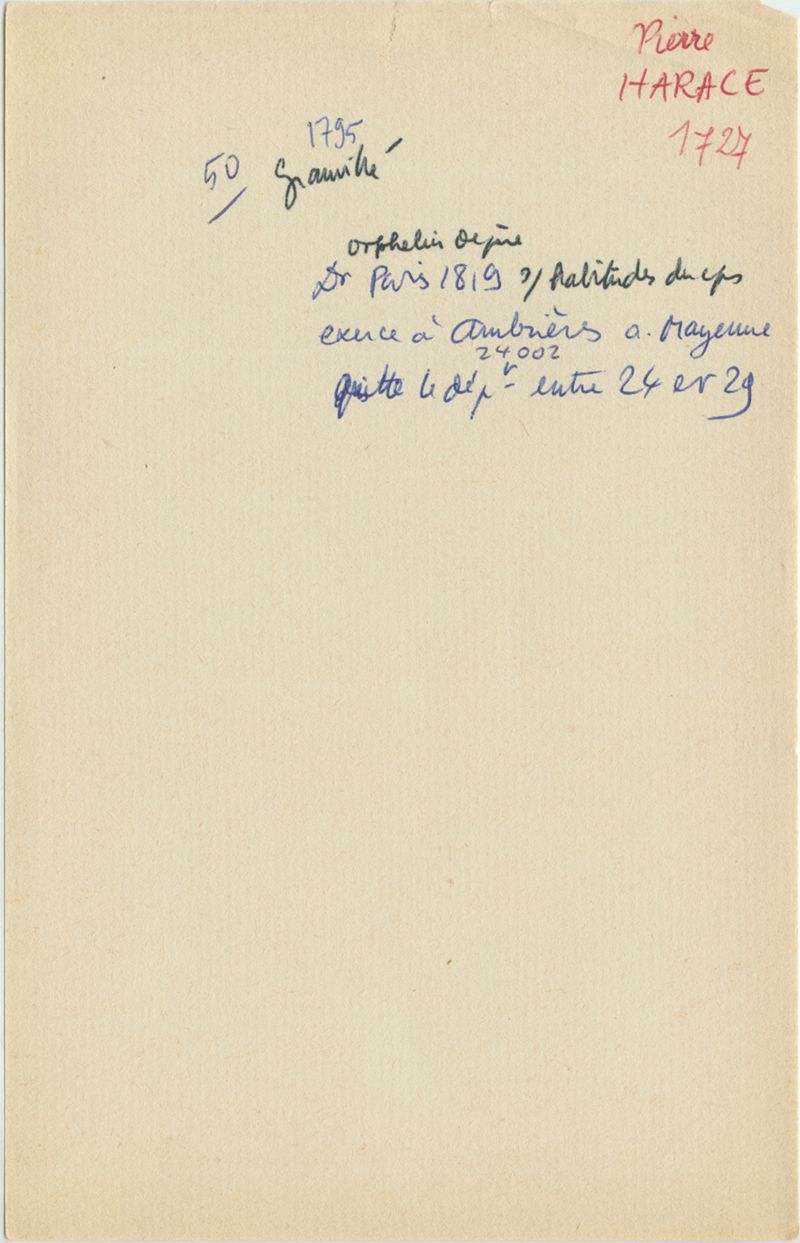 Pierre
HARACE
1727
1795
50 Granville
orphelin de père
Dr Paris 1819 s/ habitudes du cps
exerce à Ambrières a. Mayenne
24002
quitte le dépt entre 24 et 29